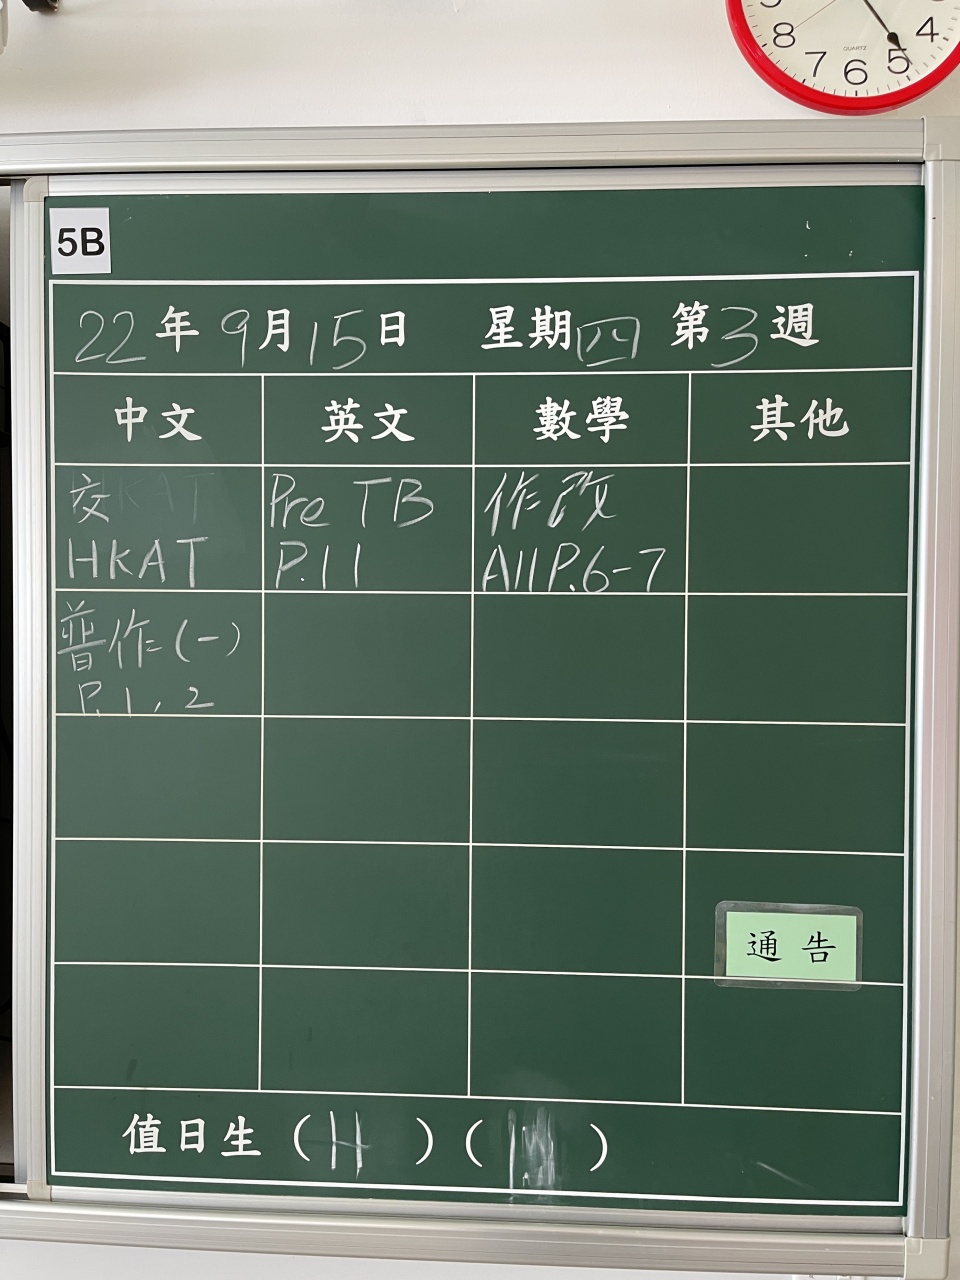 8 7 6 5 4
QUARTZ
5B
22年9月15日 星期四 第3週
中文 英文 數學 其他
交
HKAT
Pre TB
P.11
作改
All P.6-7
普作(一)
P.1, 2
通告
值日生 ( 11 ) ( )